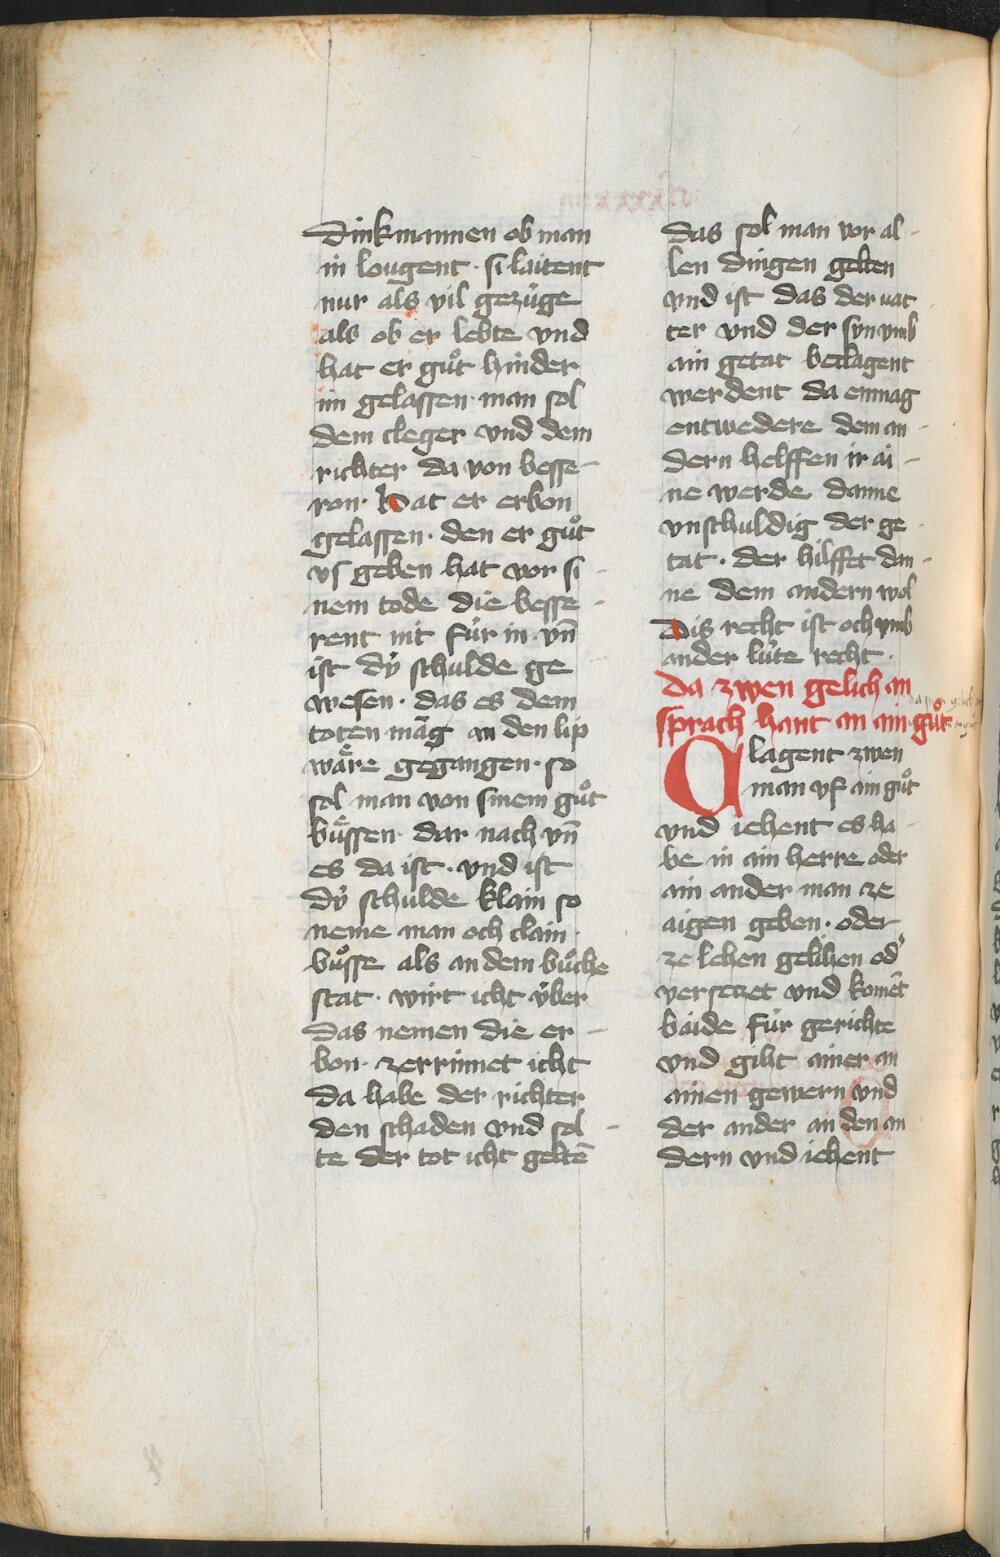 dinkmannen ob man
in lougent · si laitent
nur als vil gezúge
als ob er lebte vnd
hat er gůt hinder
im gelassen · man sol
dem cleger vnd dem
richter da von besse-
ron · Hat er erbon
gelassen · den er gůt
vs geben hat vor si-
nem tode die besse-
rent nit fúr in · vn̄
ist dẏ schulde ge
wesen · das es dem
toten mag an den lip
wäre gegangen · so
sol man von sinem gůt
bůssen · dar nach vn̄
es da ist · vnd ist
dẏ schulde klain so
neme man och clain
bůsse als an dem bůche
stat · wirt icht v́ber
das nemen die er-
bon · zerrinnet icht
da habe der richter
den schaden vnd sol-
te der tot icht geltē
das sol man vor al-
len dingen gelten
vnd ist das der uat
ter vnd der syn vmb
ain getat beclagent
werdent da enmag
entwedere dem an-
dern helffen ir ai-
ne werde danne
vnschuldig der ge-
tat · der hilffet dan-
ne dem andern wol
Dis recht ist och vmb
ander lúte recht ·
da zwen gelich an
sprach hant an ain gůt
Clagent zwen
man vf ain gůt
vnd iehent es ha-
be in ain herre oder
ain ander man ze
aigen geben · oder
ze lehen gelihen od
versetzet vnd komēt
baide fúr gerichte
vnd giht ainer an
ainen gewern vnd
der ander an den an
dern vnd iehent